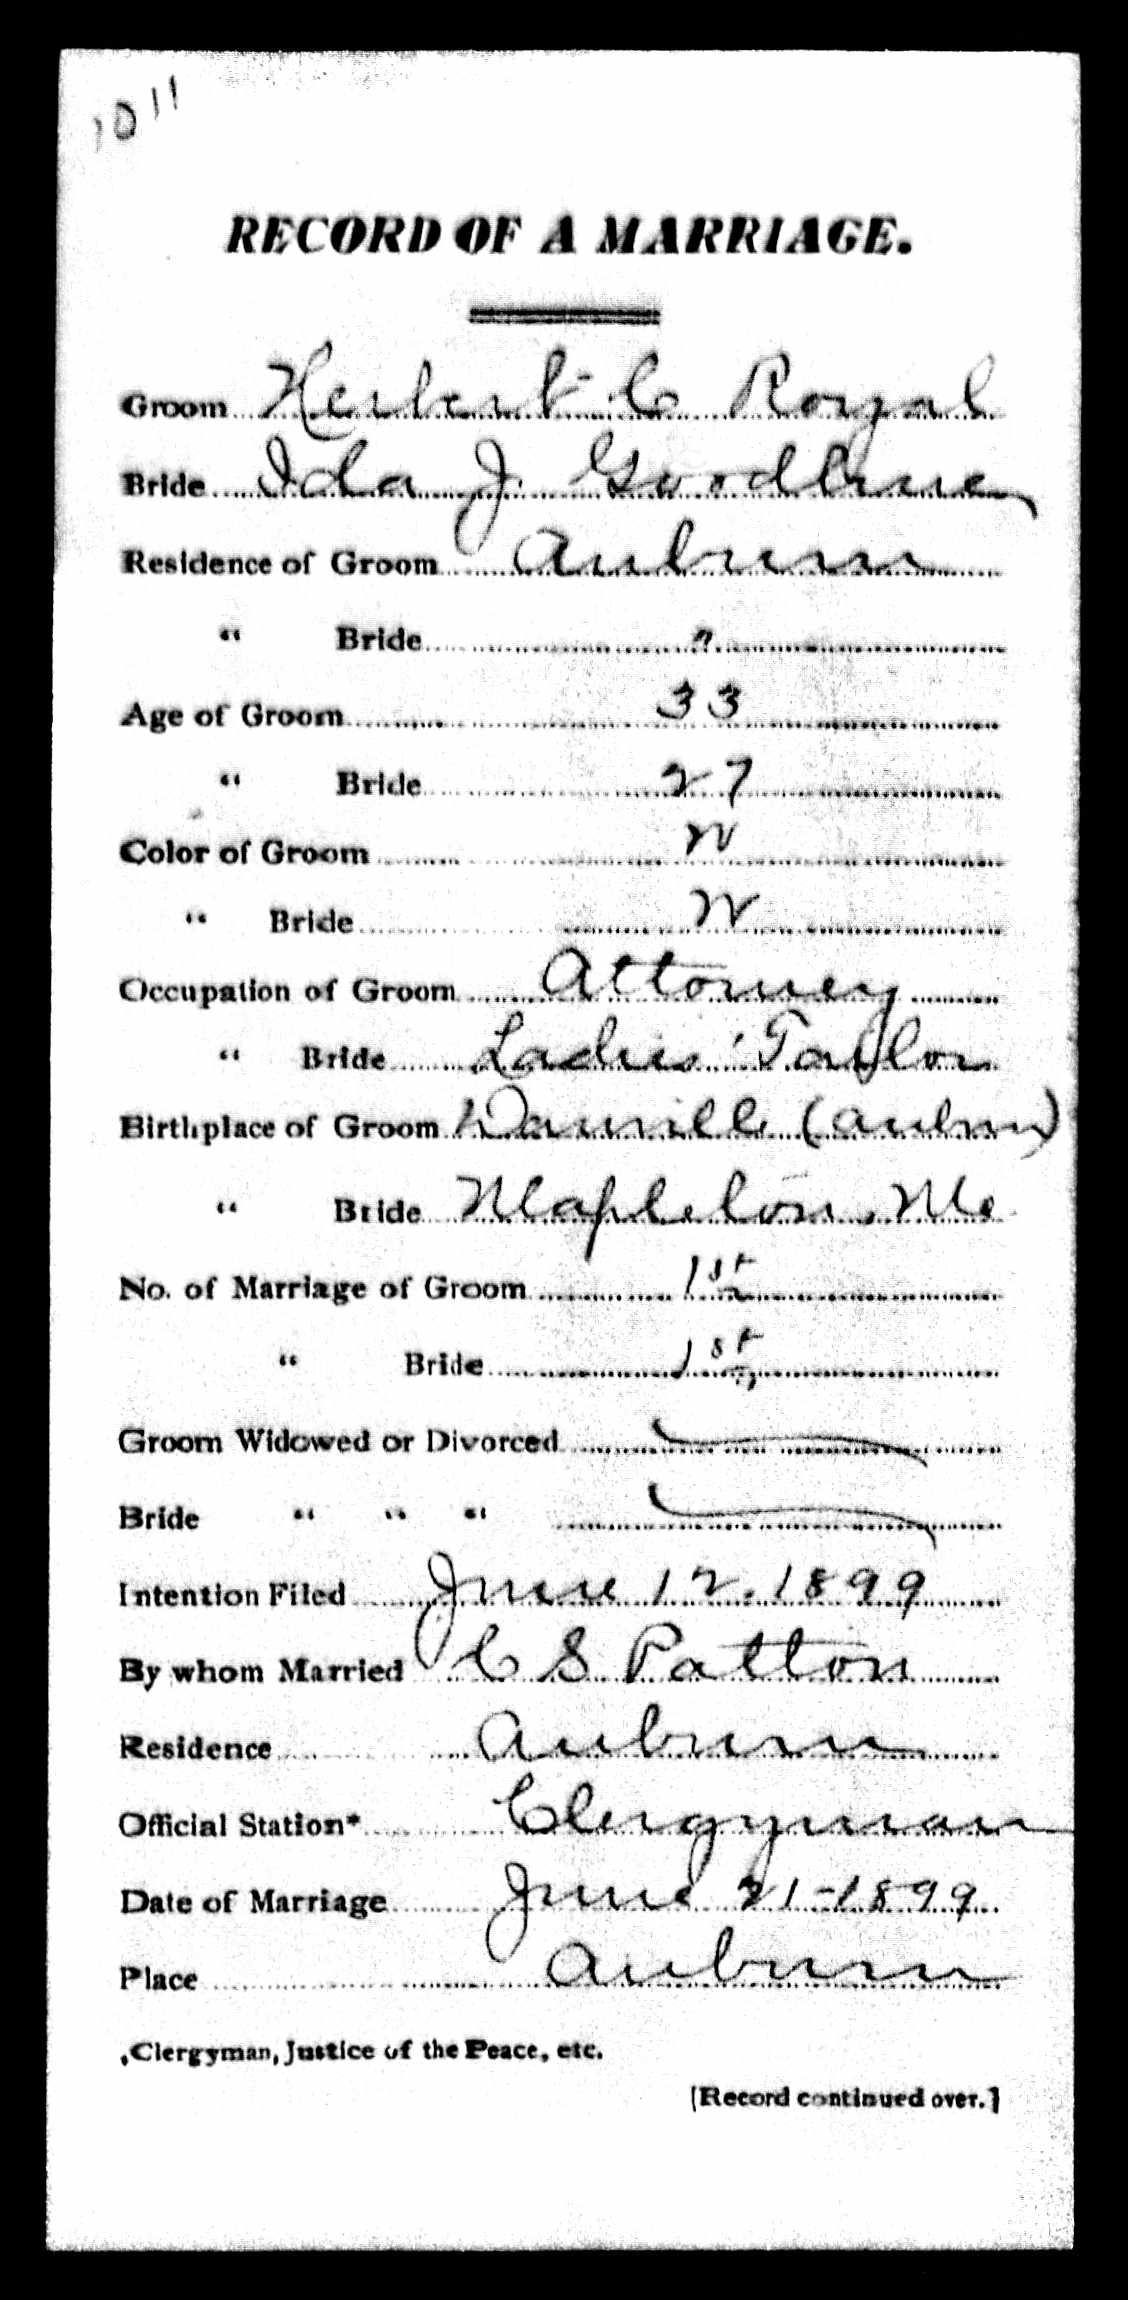 1011
RECORD OF A MARRIAGE.
Groom Herbert C Royal
Bride Ida J. Goodhue
Residence of Groom Auburn
" Bride "
Age of Groom 33
" Bride 27
Color of Groom W
" Bride W
Occupation of Groom Attorney
" Bride Ladies' Taylor
Birthplace of Groom Danville (Auburn)
" Bride Mapleton, Me
No. of Marriage of Groom 1st
" Bride 1st
Groom Widowed or Divorced
Bride " " "
Intention Filed June 12, 1899
By whom Married C S Patton
Residence Auburn
Official Station* Clergyman
Date of Marriage June 21-1899
Place Auburn
*Clergyman, Justice of the Peace, etc.
[Record continued over.]